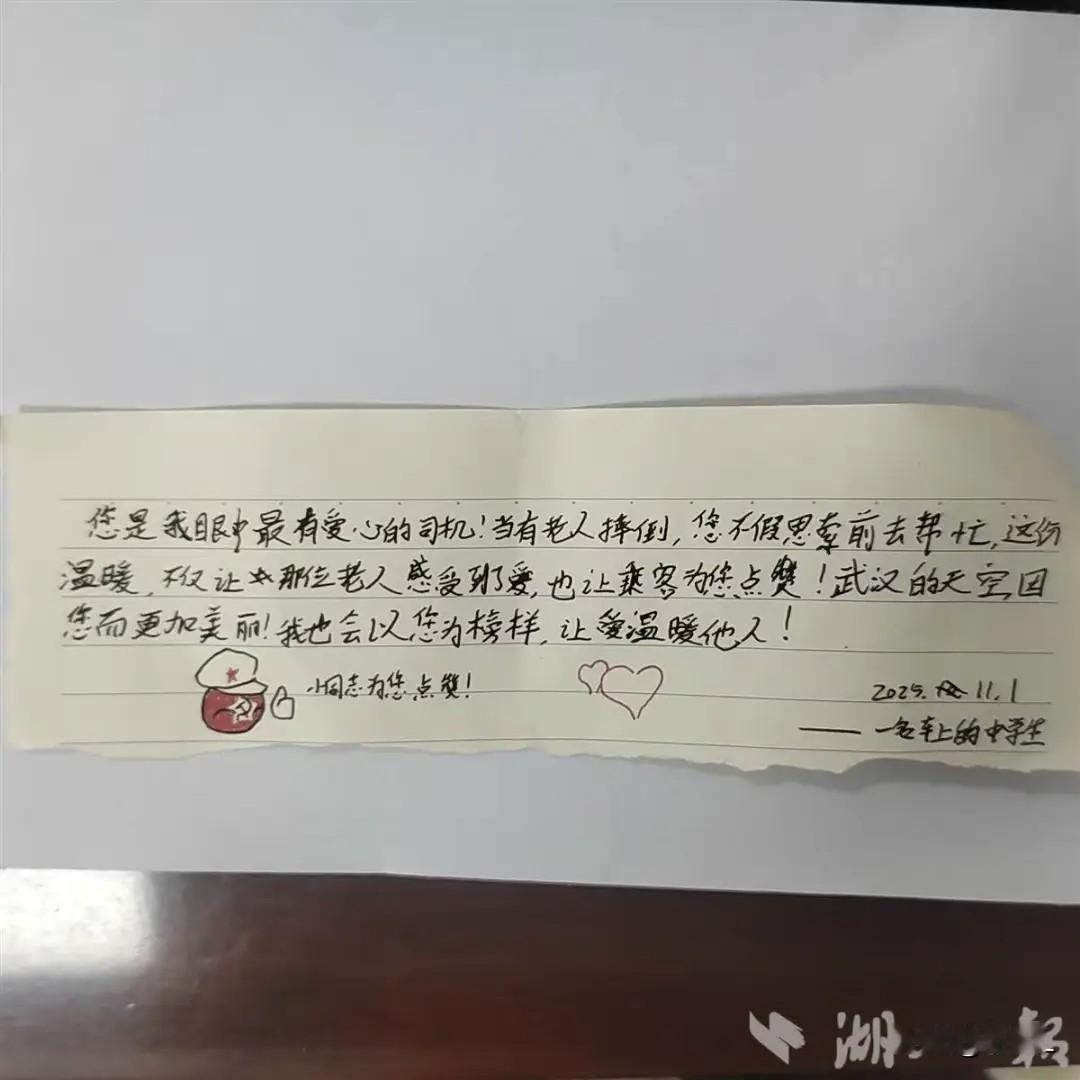 您是我眼中最有爱心的司机！当有老人摔倒，您不假思索前去帮忙，这份
温暖，不仅让那位老人感受到了爱，也让乘客为您点赞！武汉的天空因
您而更加美丽！我也会以您为榜样，让爱温暖他人！
小同志为您点赞！
2025.11.1
——一名车上的中学生
湖 报